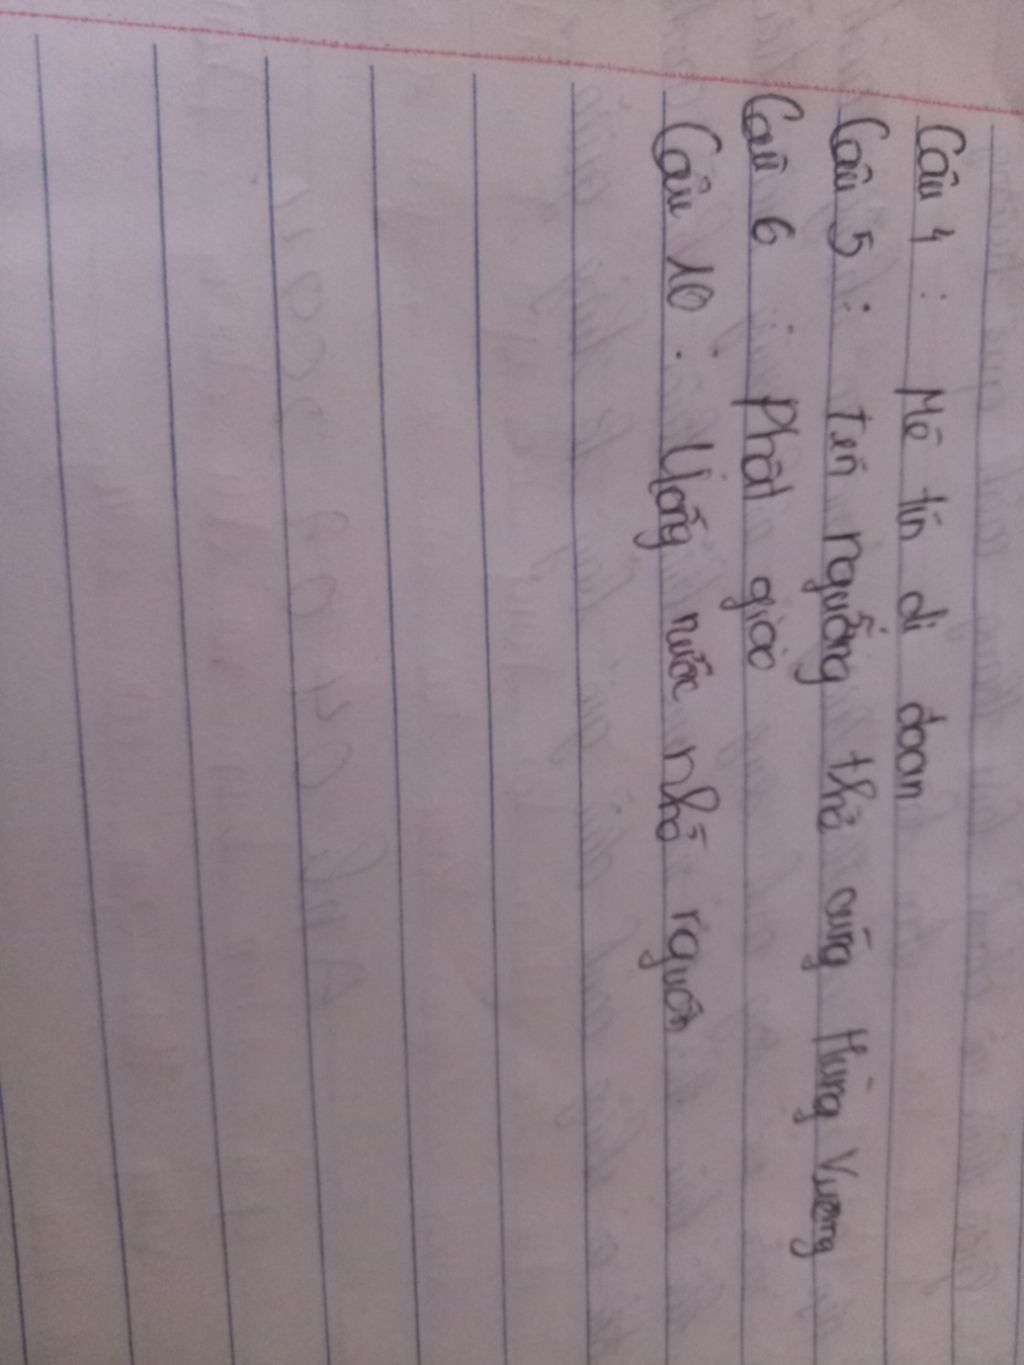 Câu 4 : Mê tín dị đoan
Câu 5 : tín ngưỡng thờ cúng Hùng Vương
Câu 6 : Phật giáo
Câu 10 : Uống nước nhớ nguồn